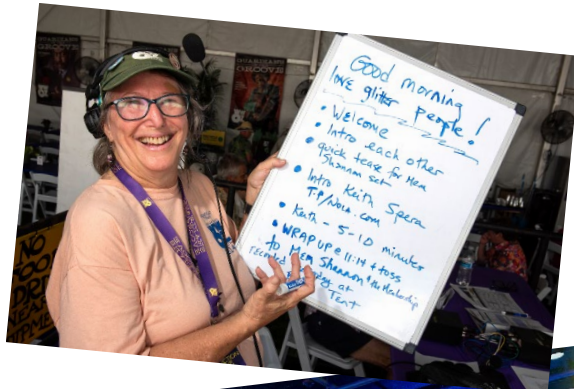 Good morning
love glitter people!
• Welcome
• Intro each other
• quick tease for Mem
Shannon set
• Intro Keith Spera
T-P/Nola.com
• Keith - 5-10 minutes
• WRAP up @ 11:14 + toss
to Mem Shannon & the Membership
recorded
day at
Tent
NO